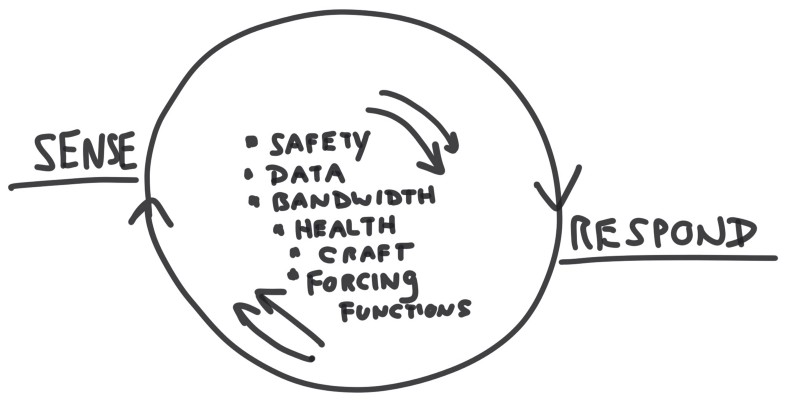 SENSE
▪ SAFETY
▪ DATA
▪ BANDWIDTH
▪ HEALTH
▪ CRAFT
▪ FORCING
FUNCTIONS
RESPOND